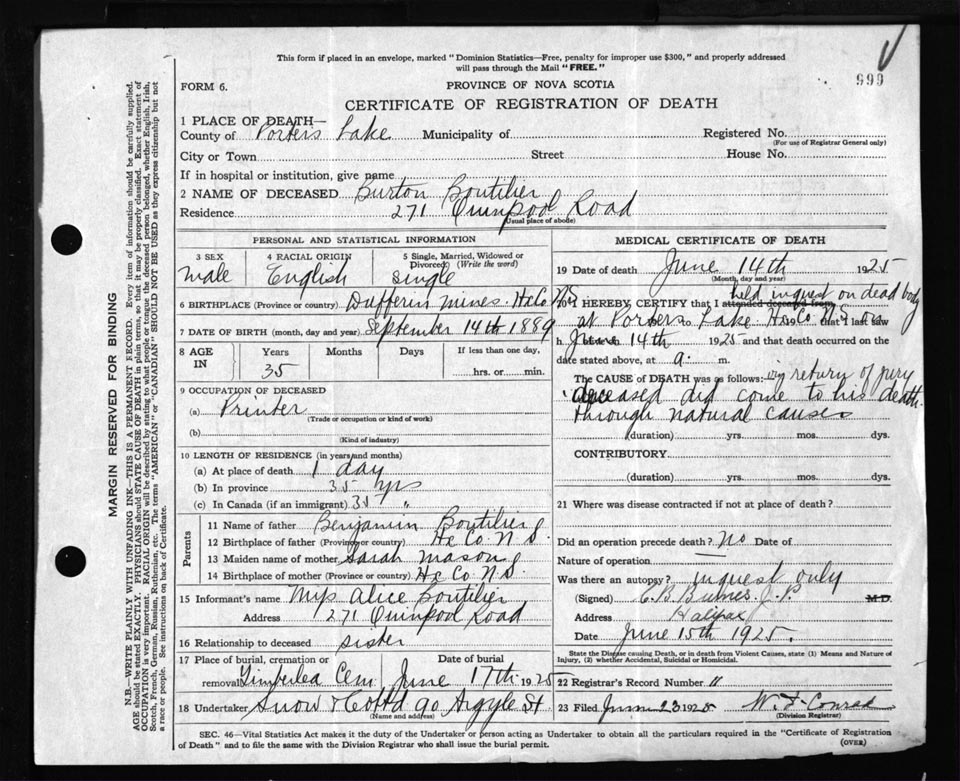 This form if placed in an envelope, marked "Dominion Statistics—Free, penalty for improper use $300," and properly addressed
will pass through the Mail "FREE."
999
FORM 6.
PROVINCE OF NOVA SCOTIA
CERTIFICATE OF REGISTRATION OF DEATH
1 PLACE OF DEATH—
County of Porters Lake Municipality of Registered No.
(For use of Registrar General only)
City or Town Street House No.
If in hospital or institution, give name
2 NAME OF DECEASED Burton Boutilier
Residence 271 Quinpool Road
(Usual place of abode)
PERSONAL AND STATISTICAL INFORMATION
3 SEX 4 RACIAL ORIGIN 5 Single, Married, Widowed or
Divorced (Write the word)
male English single
6 BIRTHPLACE (Province or country) Dufferin mines. Hx Co NS
7 DATE OF BIRTH (month, day and year) September 14th 1889
8 AGE IN Years Months Days If less than one day,
35 hrs. or min.
9 OCCUPATION OF DECEASED
(a) Printer
(Trade or occupation or kind of work)
(b)
(Kind of industry)
10 LENGTH OF RESIDENCE (in years and months)
(a) At place of death 1 day
(b) In province 35 yrs
(c) In Canada (if an immigrant) 35 "
Parents
11 Name of father Benjamin Boutilier
12 Birthplace of father (Province or country) Hx Co. N.S.
13 Maiden name of mother Sarah Mason
14 Birthplace of mother (Province or country) Hx Co N.S.
15 Informant's name Miss Alice Boutilier
Address 271 Quinpool Road
16 Relationship to deceased sister
17 Place of burial, cremation or Date of burial
removal Timberlea Cem June 17th 1925
18 Undertaker Snow & Co Ltd 90 Argyle St.
(Name and address)
MEDICAL CERTIFICATE OF DEATH
19 Date of death June 14th 1925
(Month, day and year)
20 I HEREBY CERTIFY that I attended deceased from held inquest on dead body
at Porters Lake Hx Co. N.S. on that I last saw
h June 14th 1925 and that death occurred on the
date stated above, at a. m.
The CAUSE of DEATH was as follows: by return of jury
deceased did come to his death
through natural causes
(duration) yrs. mos. dys.
CONTRIBUTORY
(duration) yrs. mos. dys.
21 Where was disease contracted if not at place of death?
Did an operation precede death? no Date of
Nature of operation —
Was there an autopsy? inquest only
(Signed) J.P. M.D.
Address Halifax
Date June 15th 1925.
State the Disease causing Death, or in death from Violent Causes, state (1) Means and Nature of
Injury, (2) whether Accidental, Suicidal or Homicidal.
22 Registrar's Record Number 11
23 Filed June 23 1925 W. F. Conrad
(Division Registrar)
SEC. 46—Vital Statistics Act makes it the duty of the Undertaker or person acting as Undertaker to obtain all the particulars required in the "Certificate of Registration
of Death" and to file the same with the Division Registrar who shall issue the burial permit.
(OVER)
MARGIN RESERVED FOR BINDING
N.B.—WRITE PLAINLY WITH UNFADING INK—THIS IS A PERMANENT RECORD. Every item of information should be carefully supplied.
AGE should be stated EXACTLY. PHYSICIANS should STATE CAUSE OF DEATH in plain terms, so that it may be properly classified. Exact statement of
OCCUPATION is very important. RACIAL ORIGIN will be described by stating to what people or tongue the deceased person belonged, whether English, Irish,
Scotch, French, German, Russian, Ruthenian, etc. The terms "AMERICAN" or "CANADIAN" SHOULD NOT BE USED as they express citizenship but not
a race or people. See instructions on back of Certificate.